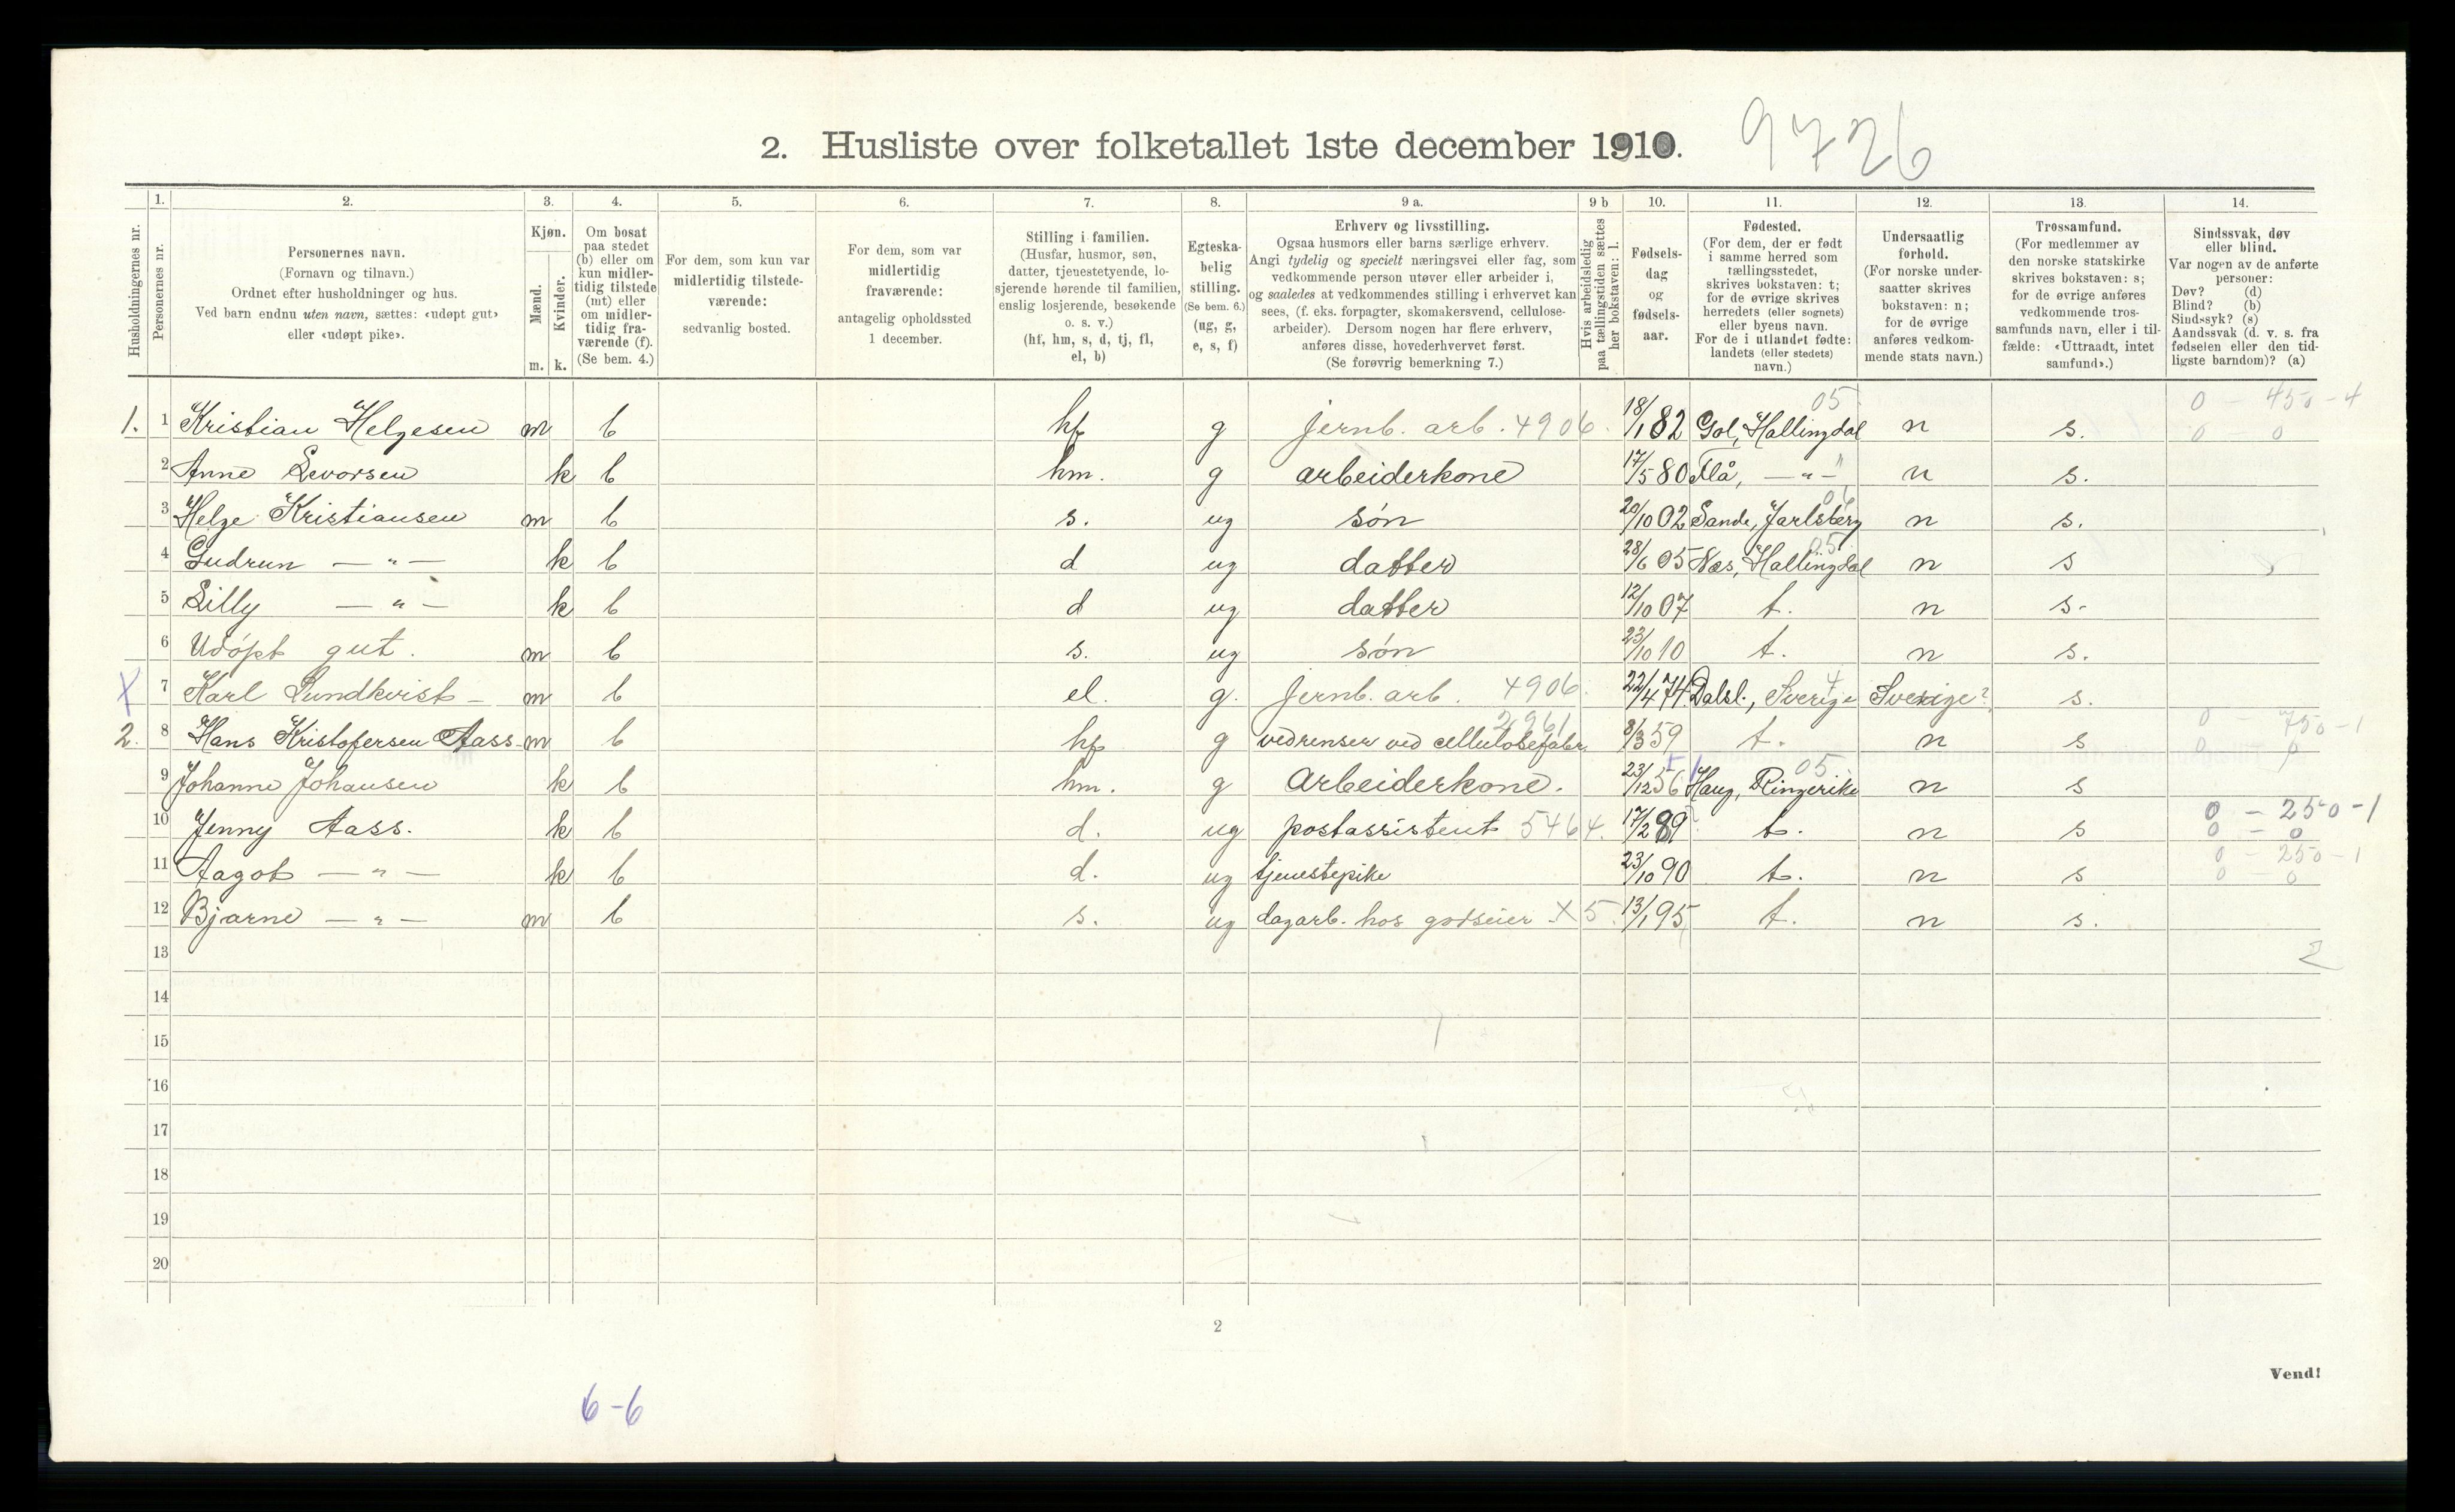 2. Husliste over folketallet 1ste december 1910. 9726
Husholdningernes nr.
1.
Personernes nr.
2.
Personernes navn.
(Fornavn og tilnavn.)
Ordnet efter husholdninger og hus.
Ved barn endnu uten navn, sættes: «udøpt gut»
eller «udøpt pike».
3.
Kjøn.
Mænd. Kvinder.
m. k.
4.
Om bosat
paa stedet
(b) eller om
kun midler-
tidig tilstede
(mt) eller
om midler-
tidig fra-
værende (f).
(Se bem. 4.)
5.
For dem, som kun var
midlertidig tilstede-
værende:
sedvanlig bosted.
6.
For dem, som var
midlertidig
fraværende:
antagelig opholdssted
1 december.
7.
Stilling i familien.
(Husfar, husmor, søn,
datter, tjenestetyende, lo-
sjerende hørende til familien,
enslig losjerende, besøkende
o. s. v.)
(hf, hm, s, d, tj, fl,
el, b)
8.
Egteska-
belig
stilling.
(Se bem. 6.)
(ug, g,
e, s, f)
9 a.
Erhverv og livsstilling.
Ogsaa husmors eller barns særlige erhverv.
Angi tydelig og specielt næringsvei eller fag, som
vedkommende person utøver eller arbeider i,
og saaledes at vedkommendes stilling i erhvervet kan
sees, (f. eks. forpagter, skomakersvend, cellulose-
arbeider). Dersom nogen har flere erhverv,
anføres disse, hovederhvervet først.
(Se forøvrig bemerkning 7.)
9 b
Hvis arbeidsledig
paa tællingstiden sættes
her bokstaven: l.
10.
Fødsels-
dag
og
fødsels-
aar.
11.
Fødested.
(For dem, der er født
i samme herred som
tællingsstedet,
skrives bokstaven: t;
for de øvrige skrives
herredets (eller sognets)
eller byens navn.
For de i utlandet fødte:
landets (eller stedets)
navn.)
12.
Undersaatlig
forhold.
(For norske under-
saatter skrives
bokstaven: n;
for de øvrige
anføres vedkom-
mende stats navn.)
13.
Trossamfund.
(For medlemmer av
den norske statskirke
skrives bokstaven: s;
for de øvrige anføres
vedkommende tros-
samfunds navn, eller i til-
fælde: «Uttraadt, intet
samfund».)
14.
Sindssvak, døv
eller blind.
Var nogen av de anførte
personer:
Døv? (d)
Blind? (b)
Sindssyk? (s)
Aandssvak (d. v. s. fra
fødselen eller den tid-
ligste barndom)? (a)
05 0 - 450 - 4
1. 1 Kristian Helgesen m b hf g jernb. arb. 4906. 18/1 82 Gol, Hallingdal n s. 0 - 0
2 Anne Sevorsen k b hm. g arbeiderkone 17/5 80 Flå, — " — n s.
3 Helge Kristiansen m b s. ug søn 20/10 02 Sande, Jarlsberg n s.
4 Gudrun — " — k b d ug datter 28/6 05 Nes, Hallingdal 05 n s
5 Lilly — " — k b d ug datter 12/10 07 t. n s.
6 Udøpt gut. m b s. ug søn 23/10 10 t. n s.
X 7 Karl Lundkvist - m b el. g. jernb. arb. 4906. 22/4 74 Dalsl., Sverige 4 Sverige? s.
2. 8 Hans Kristofersen Aass m b hf g vedrenser ved cellulosefabr. 2961 8/3 59 t. n s 0 750 - 1
0 0
9 Johanne Johansen k b hm. g Arbeiderkone. 23/12 56 Haug, Ringerike 05 n s
10 Jenny Aass. k b d. ug postassistent 5464. 17/2 89 t. n s 0 - 250 - 1
0 - 0
11 Aagot — " — k b d. ug tjenestepike 23/10 90 t. n s 0 - 250 - 1
0 - 0
12 Bjarne — " — m b s. ug dagarb. hos godseier X 5. 13/1 95 t. n s.
13
14
15
16
17
18
19
20
2
Vend!
6-6